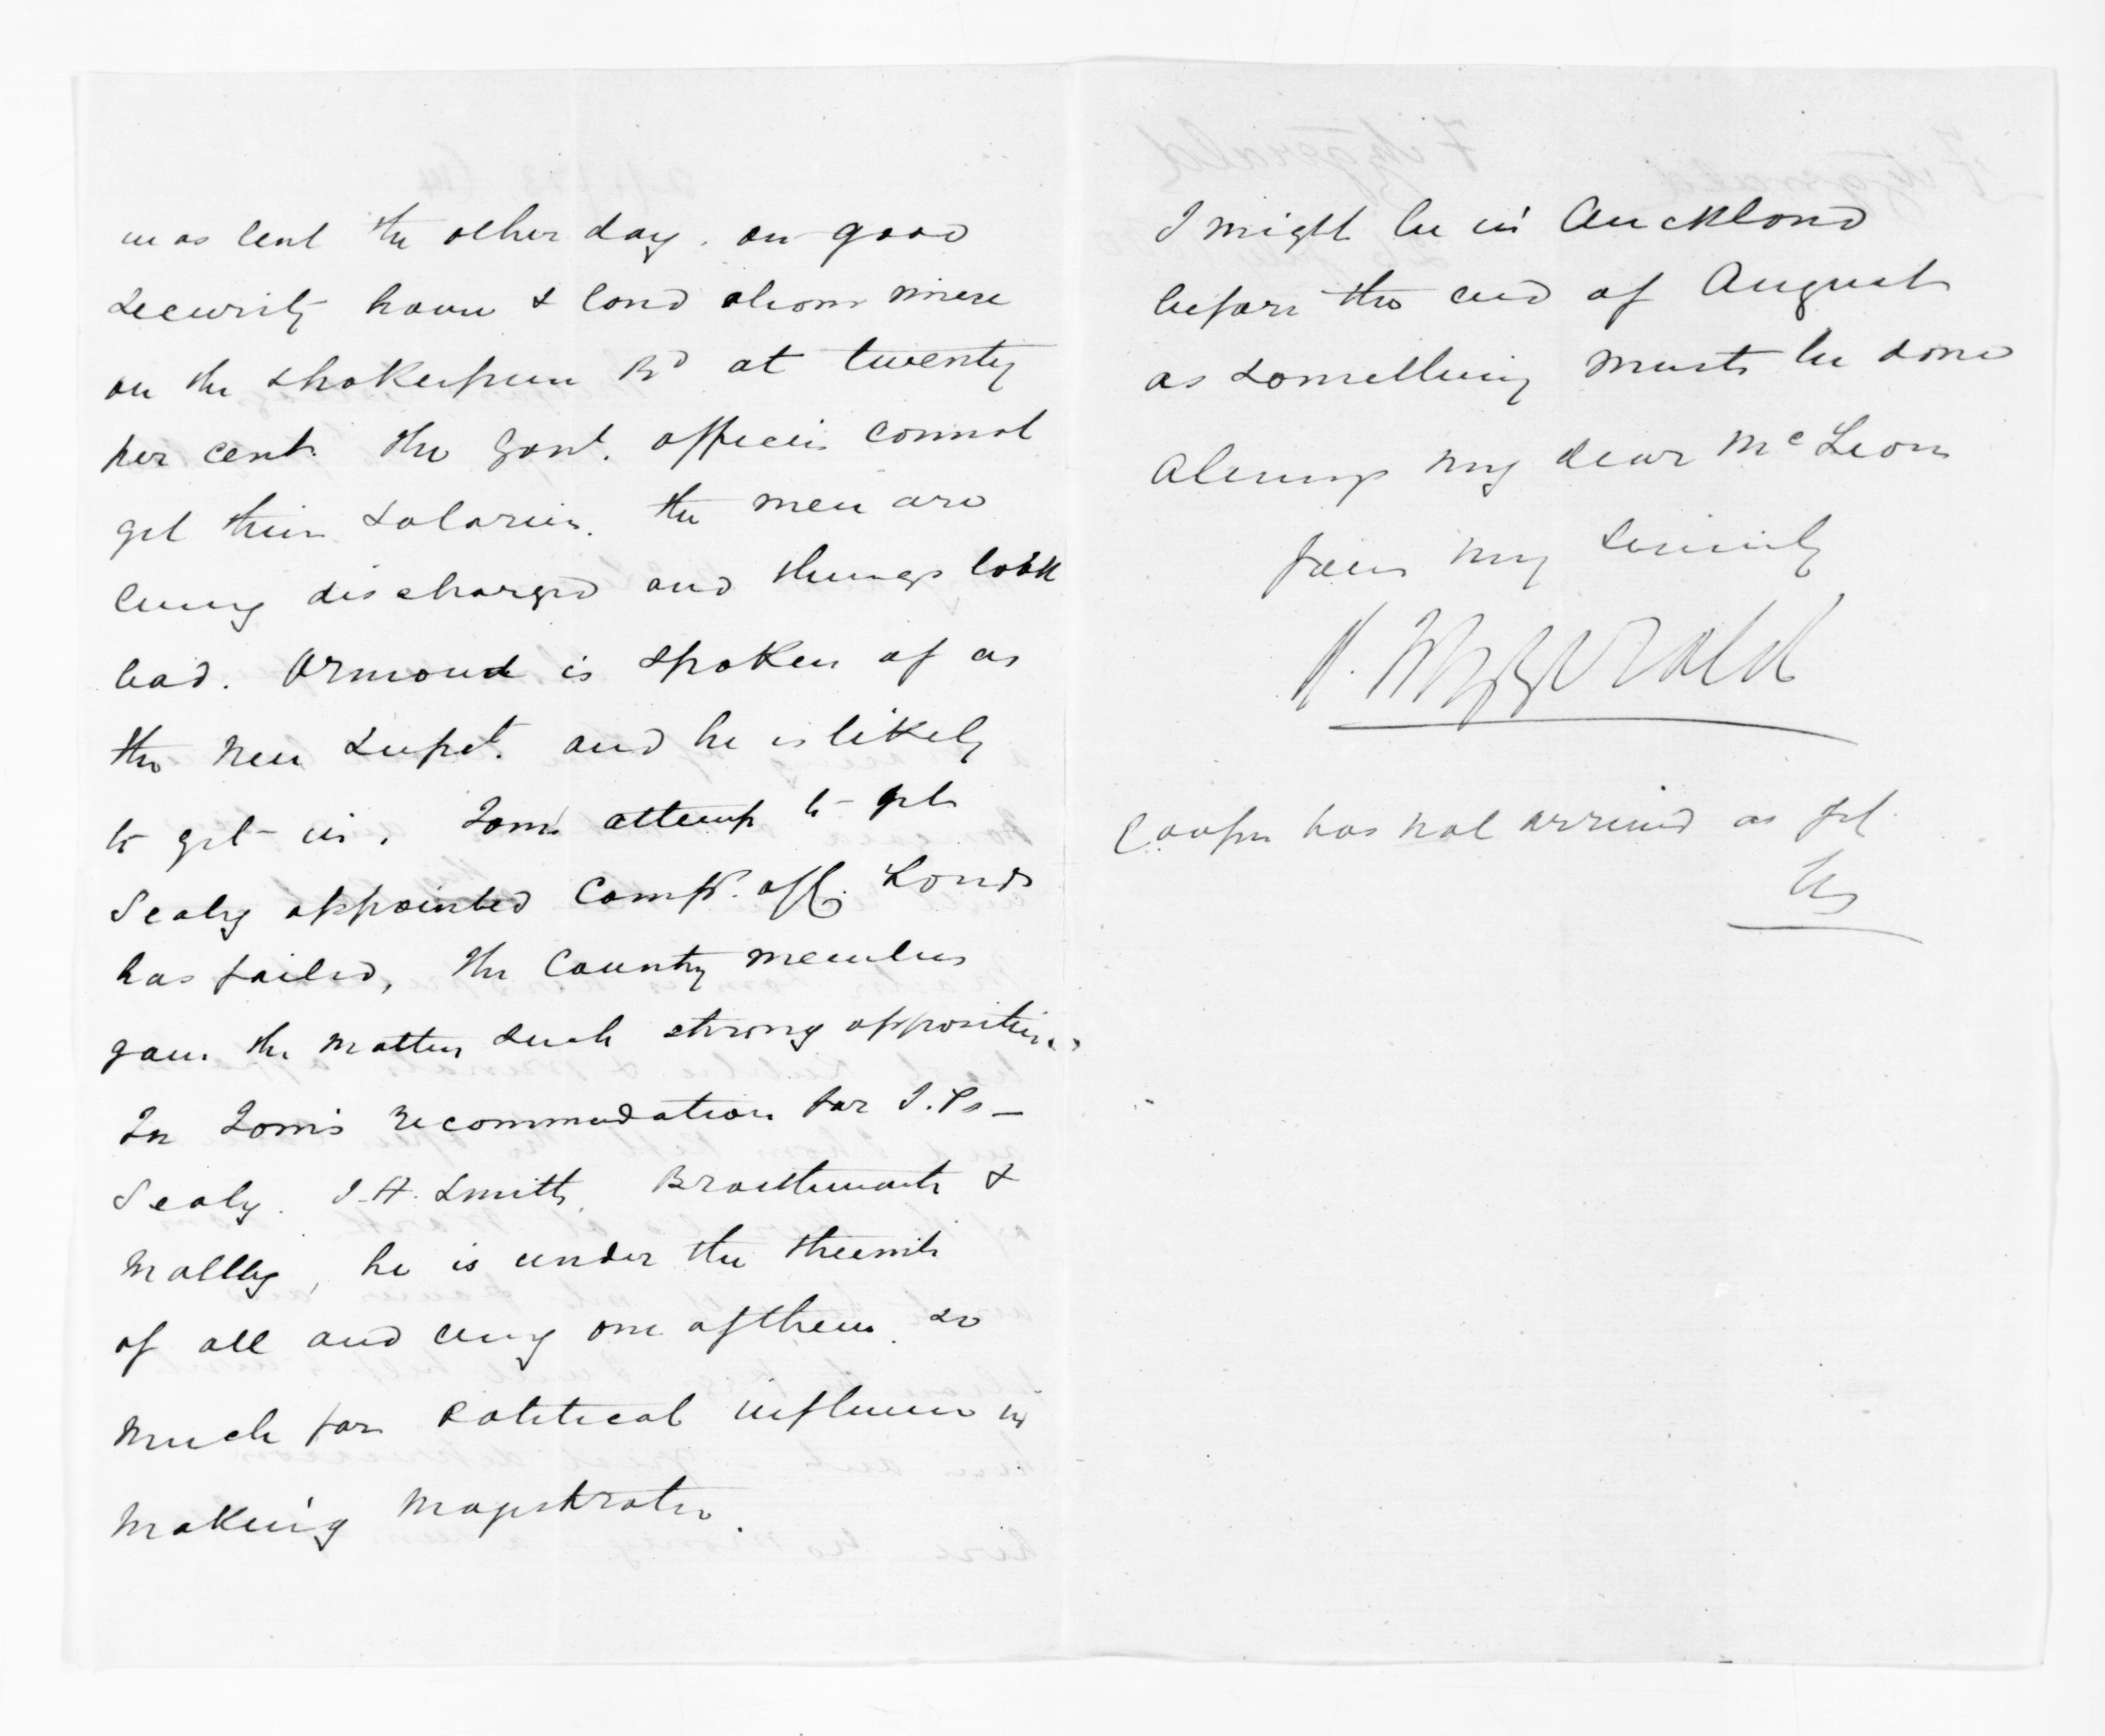 was lent the other day, on good
security house & land above mine
on the Shakespear Rd at twenty
per cent. The Govt. officers cannot
get their salaries. the men are
being discharged and things look
bad. Ormond is spoken of as
the new Supet. and he is likely
to get in. Tom's attempt to get
Sealy appointed Comr. of C. Lands
has failed, the Country members
gave the matter such strong opposition.
In Tom's recommendation for J.Ps_
Sealy. J.H. Smith, Braithwaite &
Maltby, he is under the thumb
of all and every one of them. so
much for Political influence in
making Magistrates.
I might be in Auckland
before the end of August
as something must be done
Always my dear McLean
Yours very sincerely
Fitzgerald
Cooper has not arrived as yet.